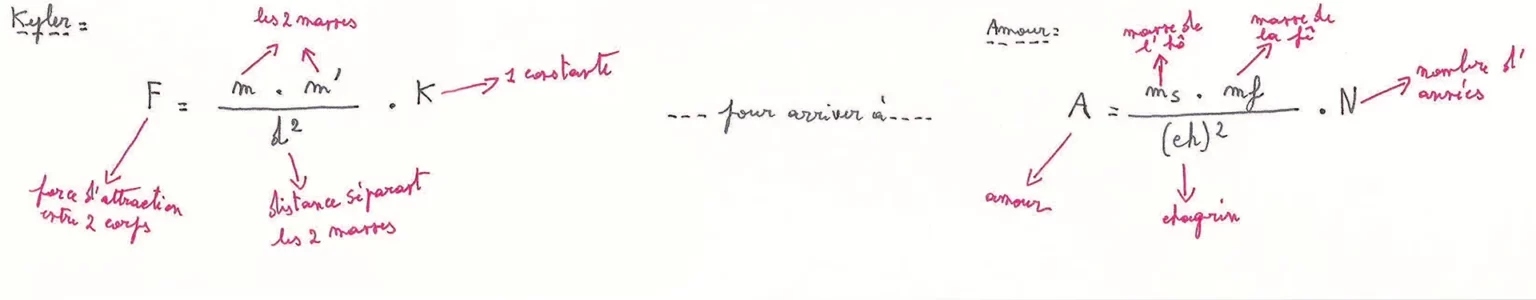 Kepler =
les 2 masses
F = m . m' / d² . K
1 constante
force d'attraction
entre 2 corps
distance séparant
les 2 masses
--- pour arriver à ----
Amour :
masse de
l'hô
masse de
la fê
A = ms . mf / (ch)² . N
nombre d'
années
amour
chagrin